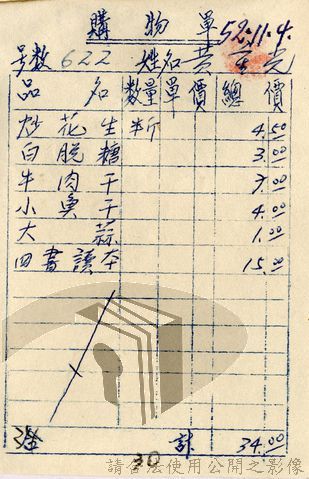 購物單 52.11.4.
号数 622 姓名 黄
品名 数量 單價 總價
炒花生 斤 4.50
白脱糖 3.00
牛肉干 7.00
小魚干 4.00
大蒜 1.00
四書讀本 15.00
計 34.00
30
請合法使用公開之影像